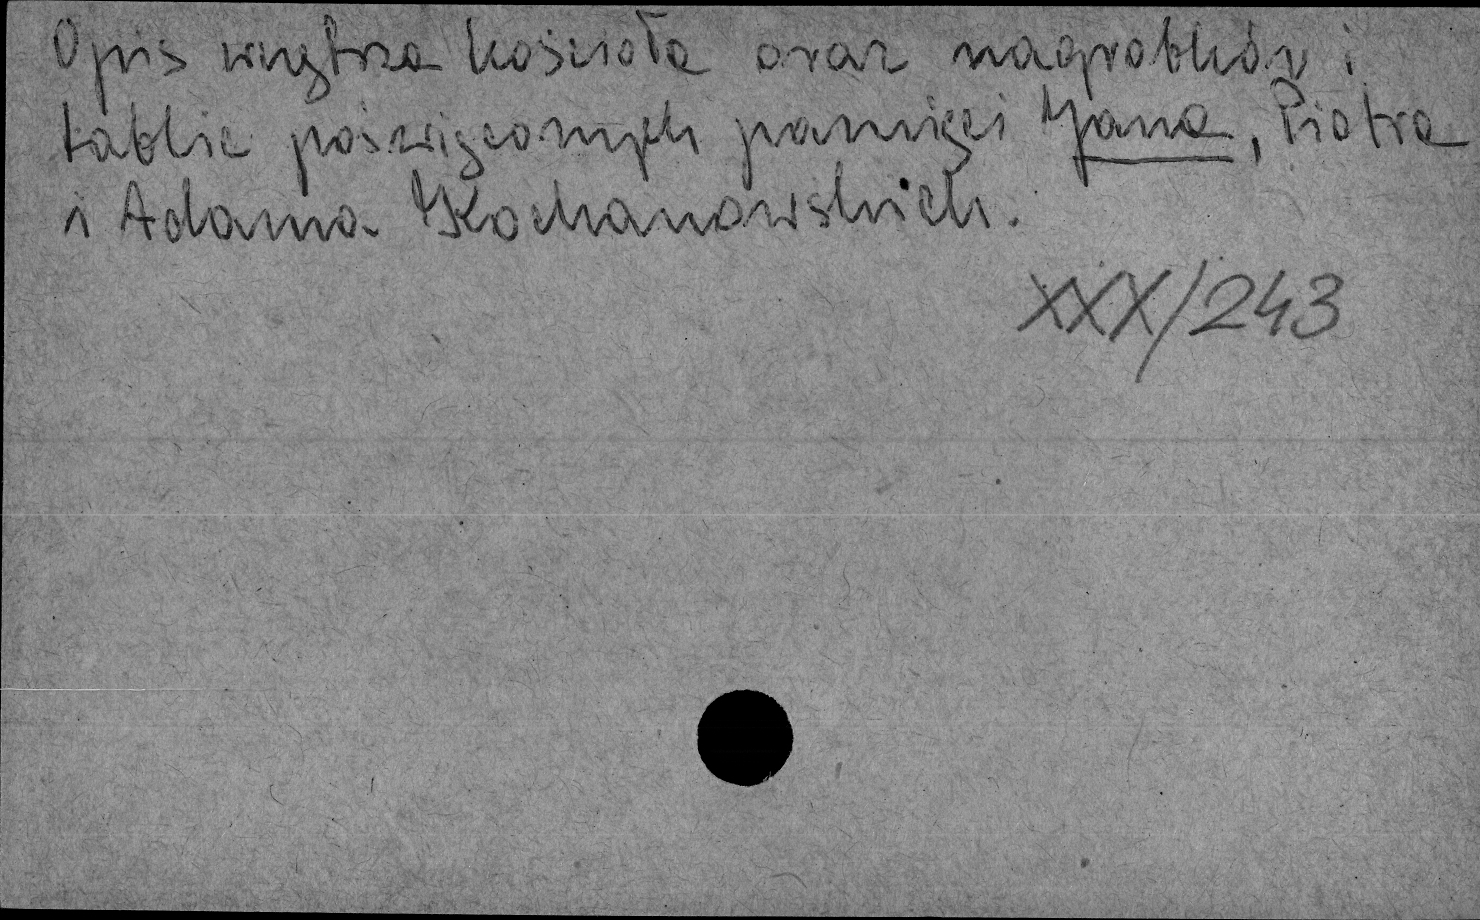 Opis wnętrza kościoła oraz nagrobków i
tablic poświęconych pamięci Jana, Piotra
i Adama Kochanowskich.
XXX/243